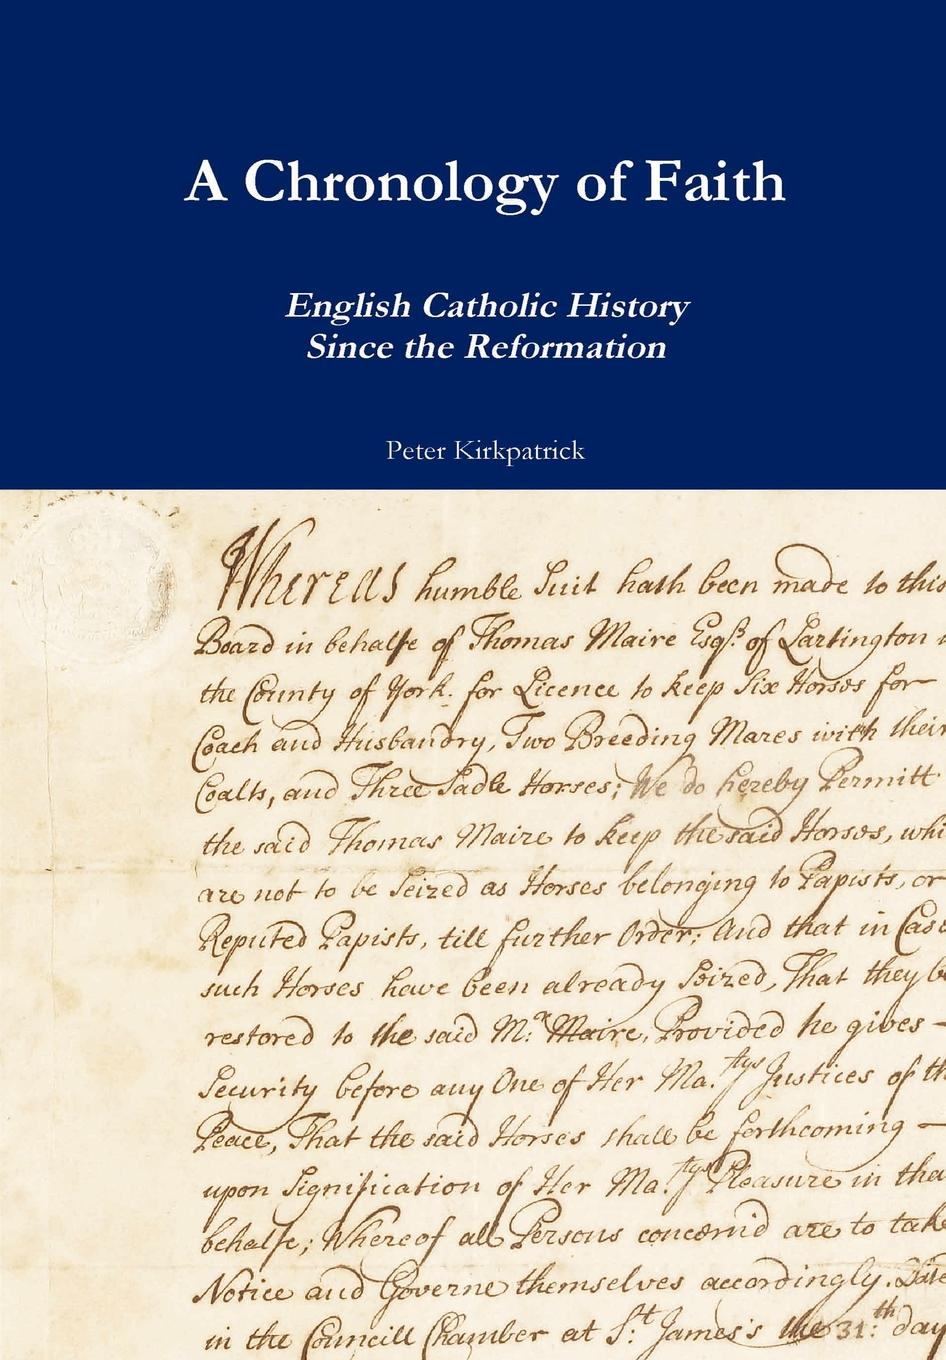 A Chronology of Faith
English Catholic History
Since the Reformation
Peter Kirkpatrick
Whereas humble Suit hath been made to this
Board in behalfe of Thomas Maire Esqr. of Lartington
the County of York. for Licence to keep Six Horses for
Coach and Husbandry, Two Breeding Mares with their
Coalts, and Three Sadle Horses; We do hereby Permitt
the said Thomas Maire to keep the said Horses, whi
are not to be Seized as Horses belonging to Papists, or
Reputed Papists, till further Order; And that in Case
such Horses have been already Seized, That they be
restored to the said Mr. Maire, Provided he gives —
Security before any One of Her Ma.tys Justices of th
Peace, That the said Horses shall be forthcoming —
upon Signification of Her Ma.tys Pleasure in tha
behalfe; Whereof all Persons concern'd are to take
Notice and Governe themselves accordingly. Date
in the Councill Chamber at St. James's the 31:th day